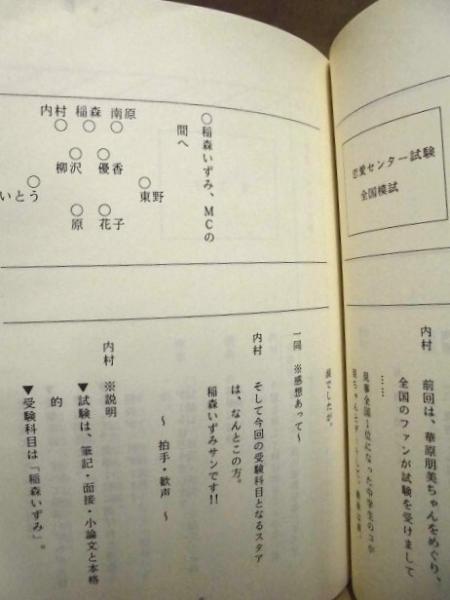 恋愛センター試験
全国模試
内村　前回は、華原朋美ちゃんをめぐり、
全国のファンが試験を受けまして
……
見事全国1位になった中学生のコが
談でしたが。
一同　※感想あって～
内村　そして今回の受験科目となるスタア
は、なんとこの方。
稲森いずみサンです!!
～　拍手・歓声　～
内村　※説明
▼試験は、筆記・面接・小論文と本格
的
▼受験科目は「稲森いずみ」。
○稲森いずみ、MCの
間へ
内村　稲森　南原
○　○　○
○　○
柳沢　優香
○　○
いとう　東野
○　○
原　花子